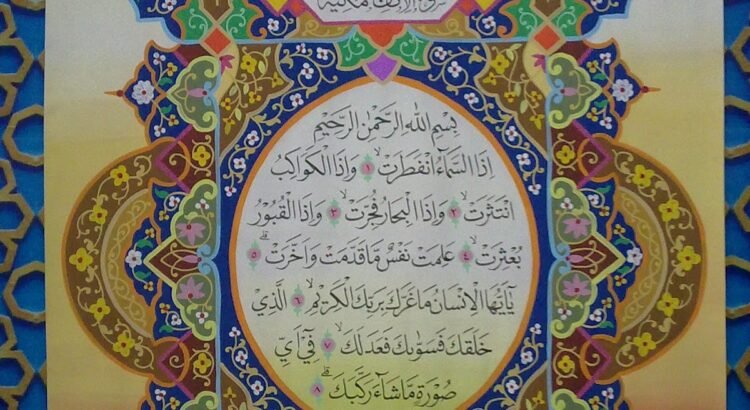 سورة الانفطار مكية
بِسْمِ اللهِ الرَّحْمٰنِ الرَّحِيْمِ
اِذَا السَّمَاۤءُ انْفَطَرَتْۙ ١ وَاِذَا الْكَوَاكِبُ
انْتَثَرَتْۙ ٢ وَاِذَا الْبِحَارُ فُجِّرَتْۙ ٣ وَاِذَا الْقُبُوْرُ
بُعْثِرَتْۙ ٤ عَلِمَتْ نَفْسٌ مَّا قَدَّمَتْ وَاَخَّرَتْۗ ٥
يٰٓاَيُّهَا الْاِنْسَانُ مَا غَرَّكَ بِرَبِّكَ الْكَرِيْمِۙ ٦ الَّذِيْ
خَلَقَكَ فَسَوّٰىكَ فَعَدَلَكَۙ ٧ فِيْٓ اَيِّ
صُوْرَةٍ مَّا شَاۤءَ رَكَّبَكَۗ ٨